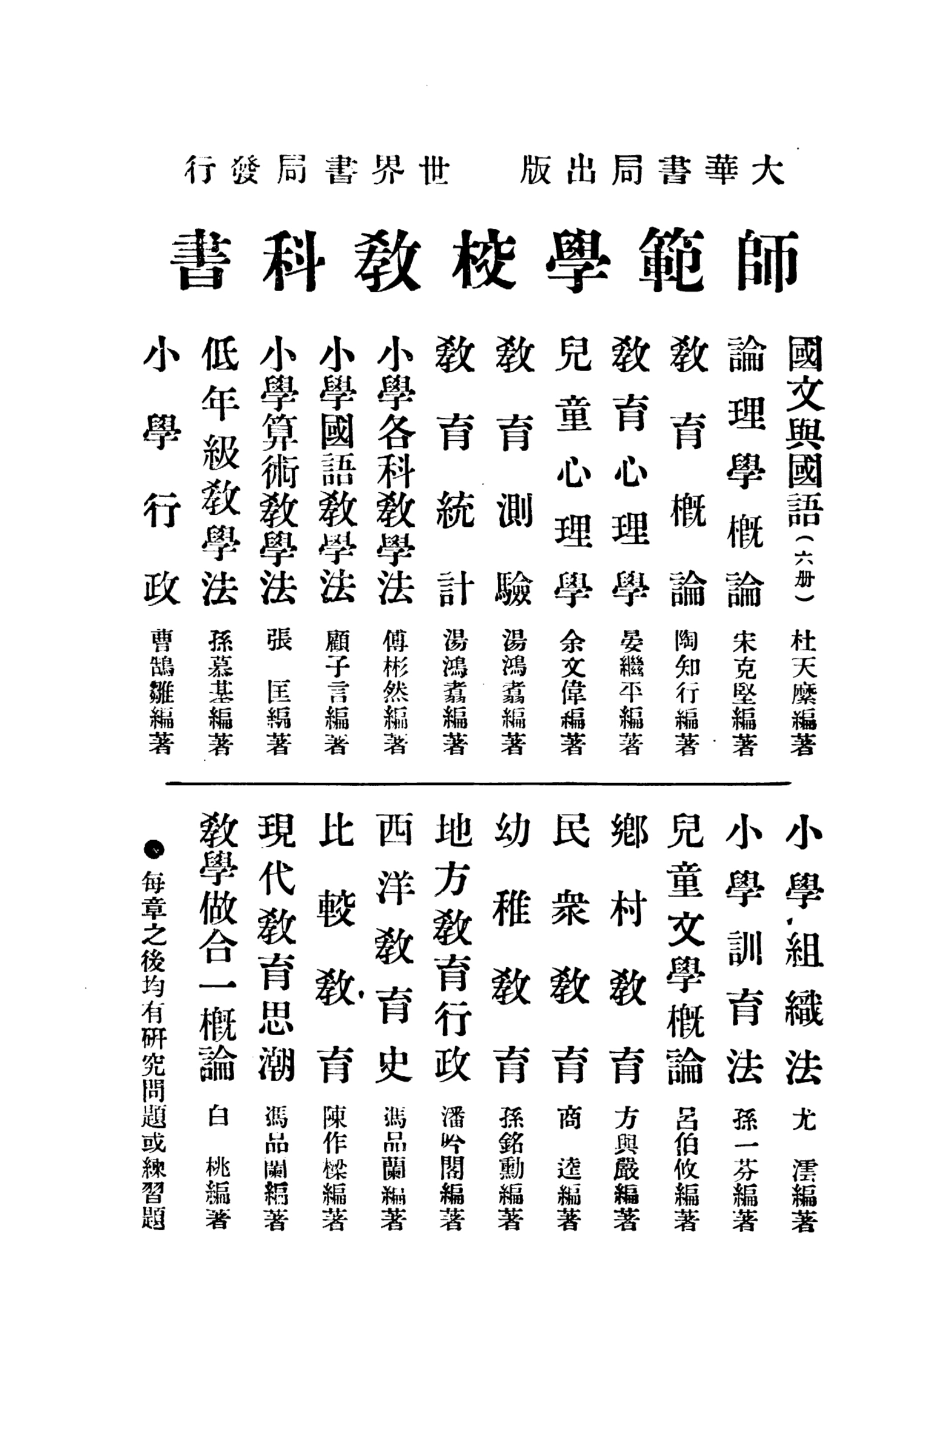 大華書局出版　世界書局發行
師範學校教科書
國文與國語（六册）　杜天縻編著
論理學概論　宋克堅編著
教育概論　陶知行編著
教育心理學　晏繼平編著
兒童心理學　余文偉編著
教育測驗　湯鴻翥編著
教育統計　湯鴻翥編著
小學各科教學法　傅彬然編著
小學國語教學法　顧子言編著
小學算術教學法　張匡編著
低年級教學法　孫慕基編著
小學行政　曹鵠雛編著
小學組織法　尤澐編著
小學訓育法　孫一芬編著
兒童文學概論　呂伯攸編著
鄉村教育　方與嚴編著
民衆教育　商逵編著
幼稚教育　孫銘勳編著
地方教育行政　潘吟閣編著
西洋教育史　馮品蘭編著
比較教育　陳作樑編著
現代教育思潮　馮品蘭編著
教學做合一概論　白桃編著
●每章之後均有研究問題或練習題